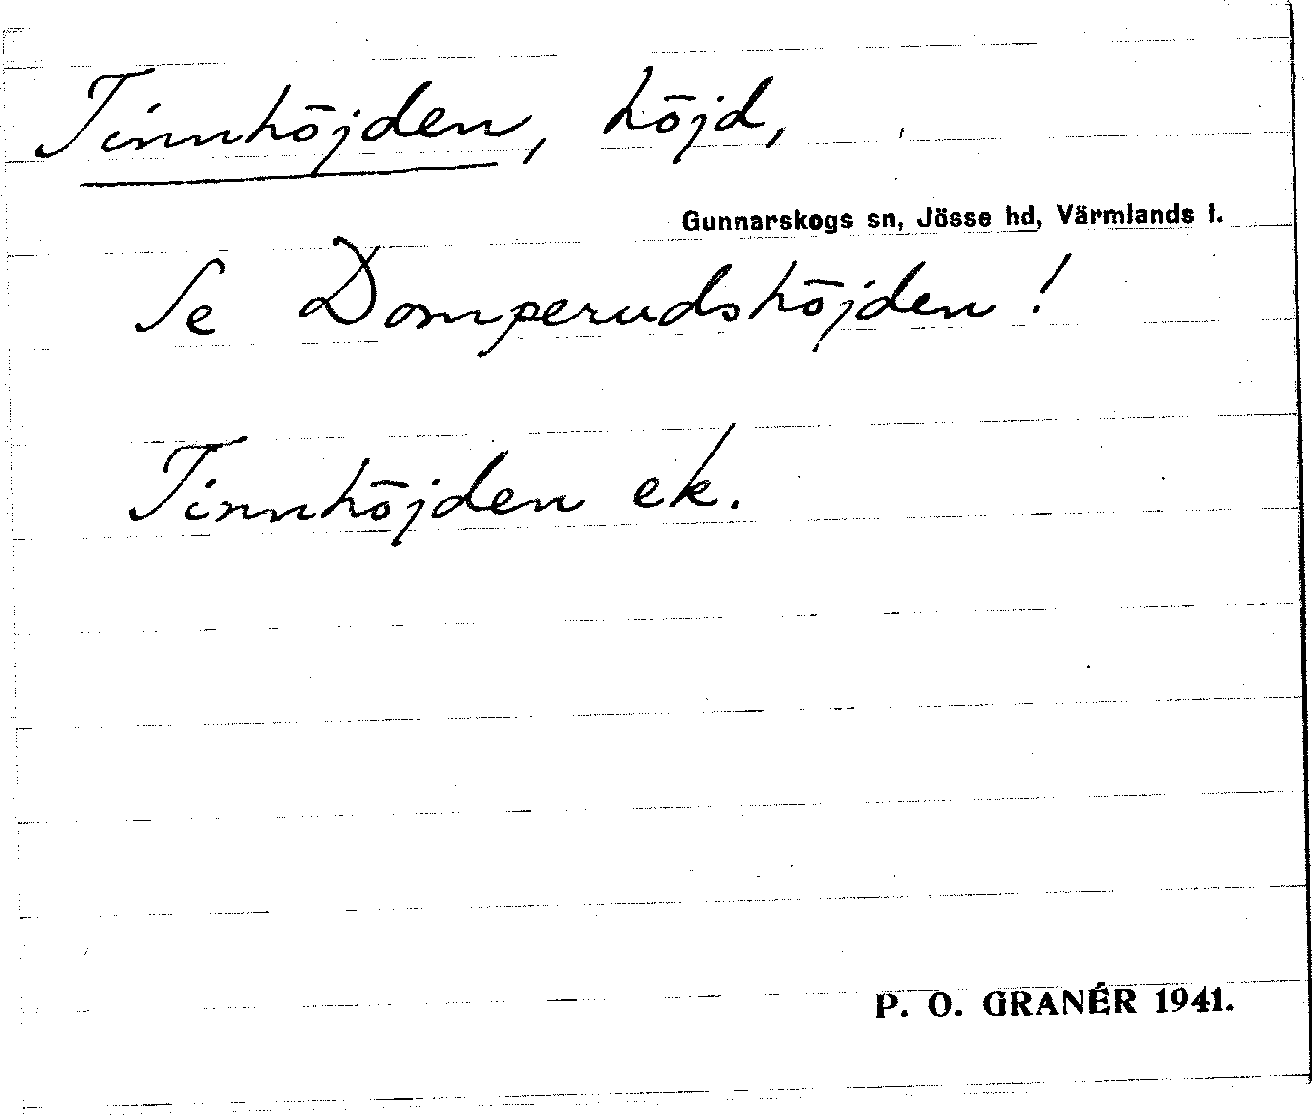 Tinnhöjden, höjd,
Gunnarskogs sn, Jösse hd, Värmlands l.
Se Domperudshöjden!
Tinnhöjden ek.
P. O. GRANÉR 1941.